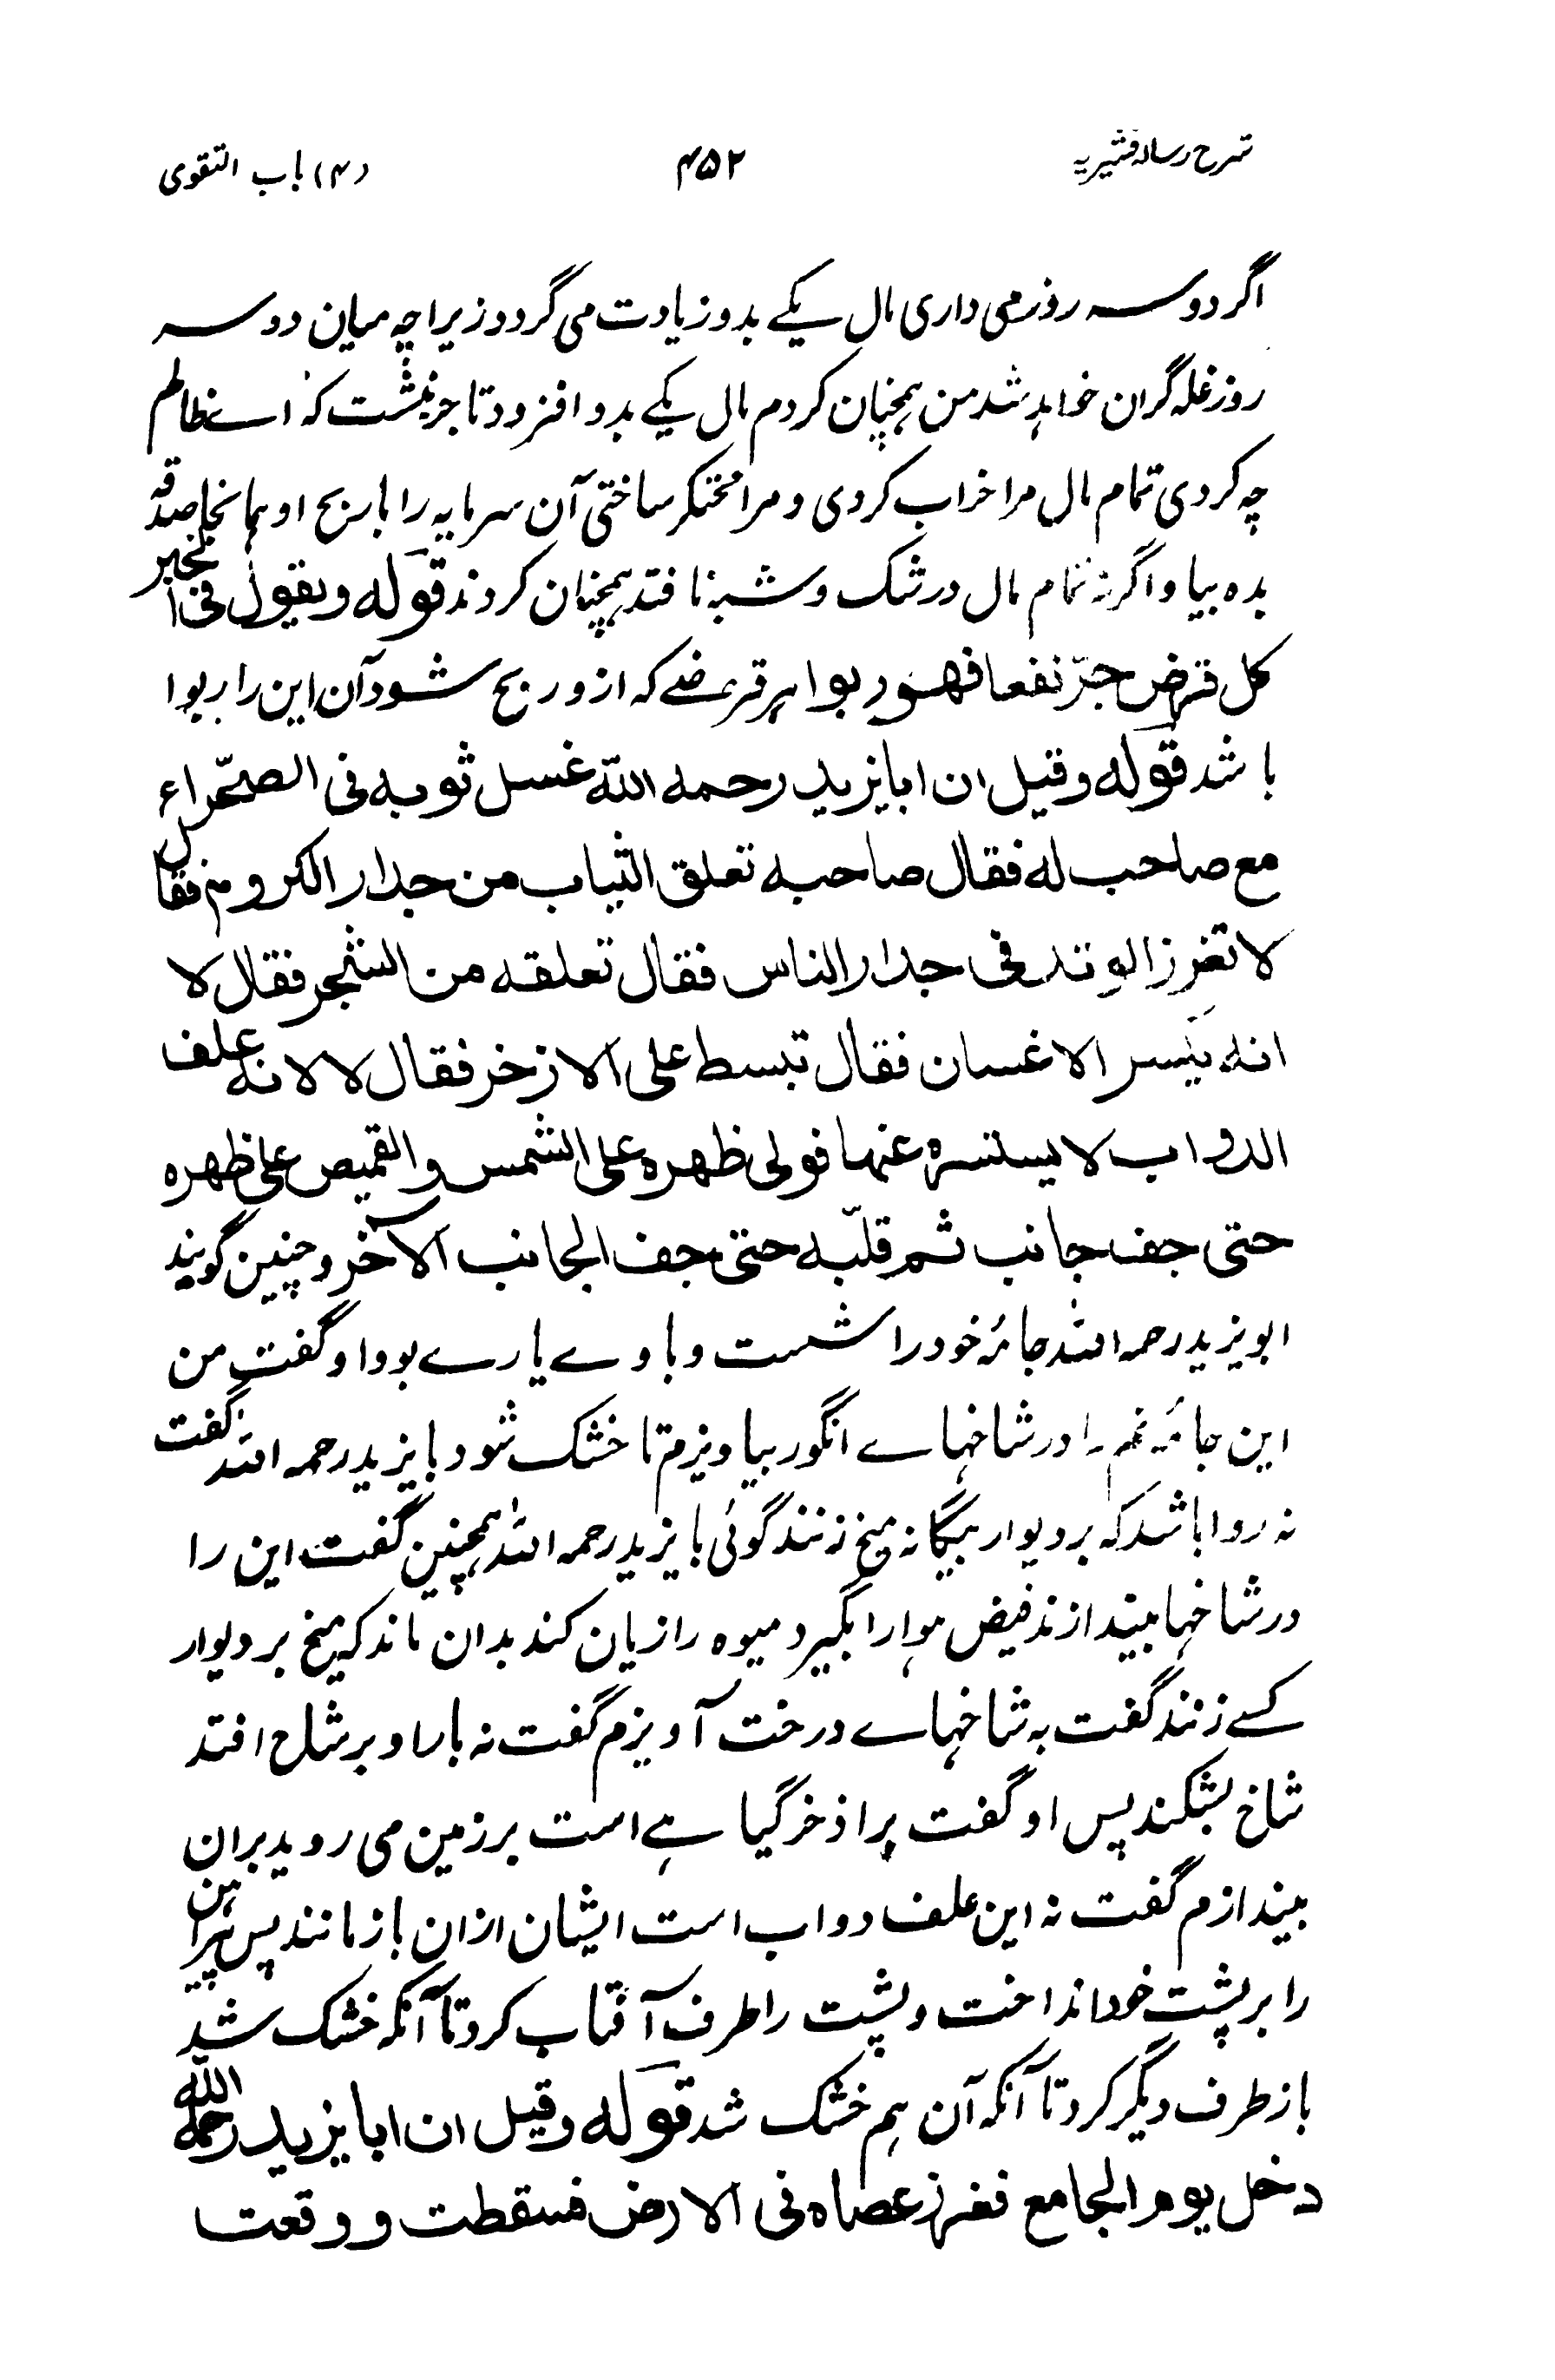 شرح رساله قشیریه ۴۵۲ (۴) باب التقوی
اگر دو سه روز می داری مال یکے بدو زیادت می گردد زیراچه میان دو سه
روز غله گران خواهد شد من همچنان کردم مال یکے بدو افزود تاجر نبشت که اے ظالم
چه کردی تمام مال مرا خراب کردی و مرا محتکر ساختی آن سرمایه را با ربح او همانجا صدقه
بده بیا و اگر نه تمام مال در شک و شبه نا فتد همچنان کردند قوله ویقول فی الخبر
کل قرض جرّ نفعا فهو ربوا هر قرضے که ازو ربح شود آن این را ربوا
باشد قوله وقیل ان ابا یزید رحمه الله غسل ثوبه فی الصحراء
مع صاحب له فقال صاحبه تعلق الثیاب من جدار الکروم فقال
لا تغرز الوتد فی جدار الناس فقال تعلقه من الشجر فقال لا
انه یکسر الاغسان فقال تبسط علی الازخر فقال لا لانه علف
الدواب لا یستره عنها فولی ظهره علی الشمس والقمیص علی ظهره
حتی جف جانب ثم قلّبه حتی جف الجانب الآخر و چنین گویند
ابویزید رحمه الله جامهٔ خود را شست و با وے یارے بود او گفت من
این جامهٔ نم را در شاخهاے انگور بیاویزم تا خشک شود بایزید رحمه الله گفت
نه روا باشد که بر دیوار بیگانه میخ زنند گوئی بایزید رحمه الله همچنین گفت این را
در شاخها بیندازند فیض هوا را بگیرد میوه را زیان کند بدان ماند که میخ بر دیوار
کسے زنند گفت به شاخهاے درخت آویزم گفت نه بار او بر شاخ افتد
شاخ بشکند پس او گفت بر اذخر گیاهے است بر زمین می روید بران
بیندازم گفت نه این علف دواب است ایشان ازان باز مانند پس پیراهن
را بر پشت خود انداخت و پشت را طرف آفتاب کرد تا آنکه خشک شد
باز طرف دیگر کرد تا آنکه آن هم خشک شد قوله وقیل ان ابا یزید رحمه الله
دخل یوم الجامع فغرز عصاه فی الارض فسقطت و وقعت